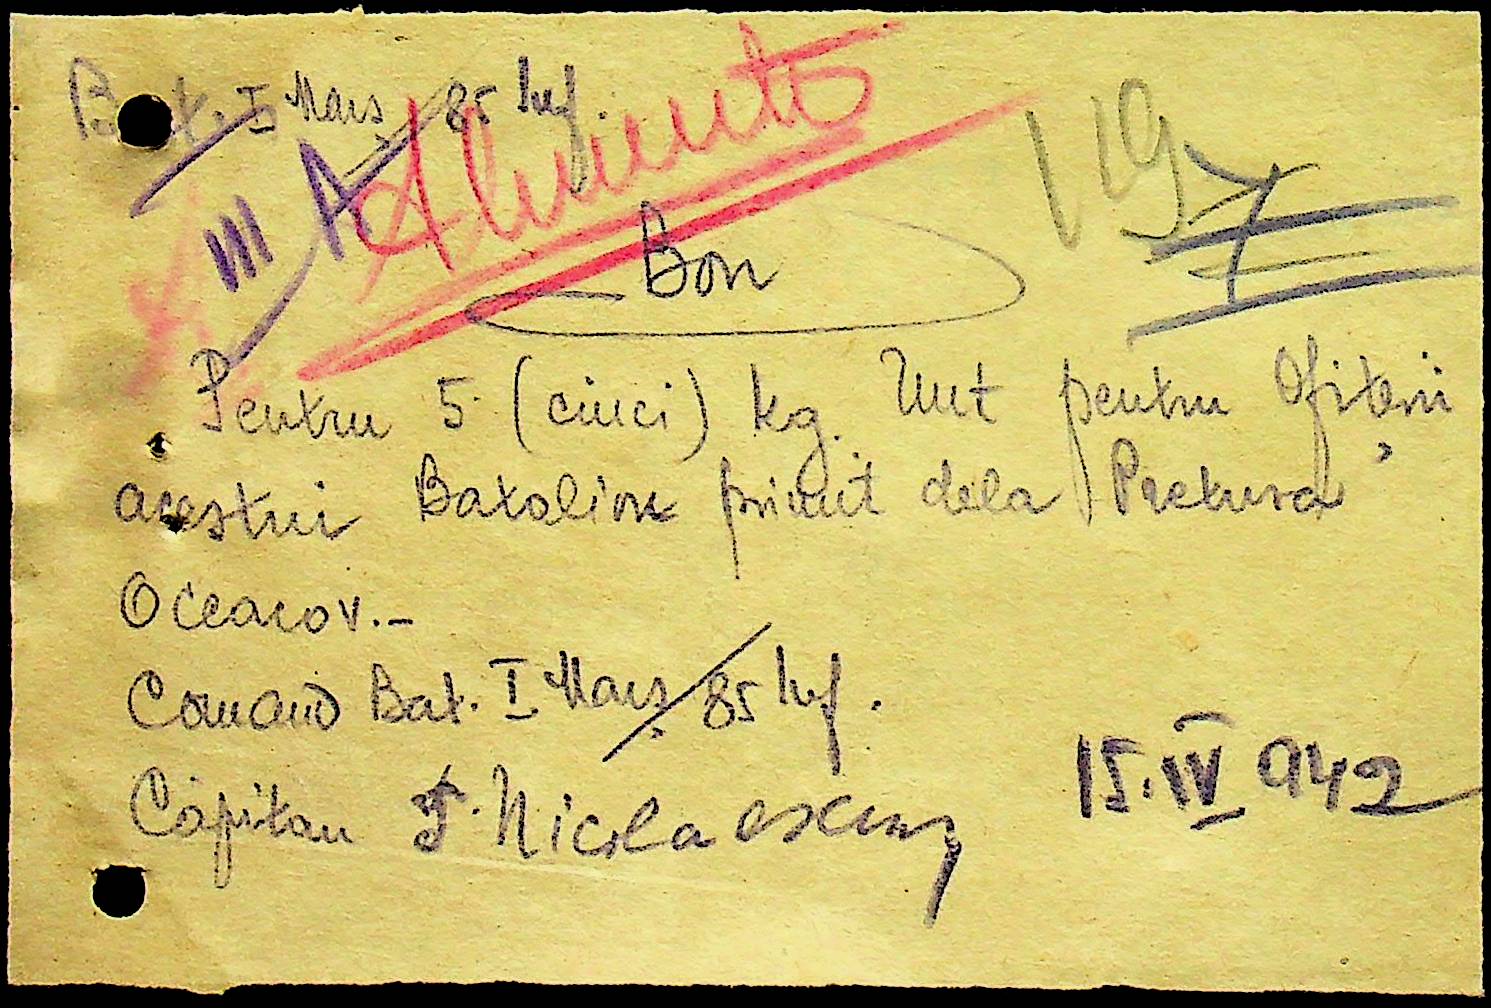 Bat. I Marș 85 Inf.
Alimente
III A
197
Bon
Pentru 5 (cinci) kg. Unt pentru Ofițerii
acestui Batalion primit dela Pretura
Oceacov.-
Comand Bat. I Marș/85 Inf.
Căpitan I. Nicolaescu
15.IV 942